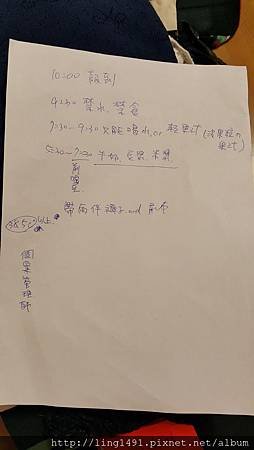 10:00 報到
9:30 禁水、禁食
7:30-9:30 只能喝水or 輕果汁(沒果粒の
果汁)
5:30-7:30 牛奶、豆漿、米漿
前喝
帶兩件褲子and 尿布
個案管理師
http://ling1491.pixnet.net/album